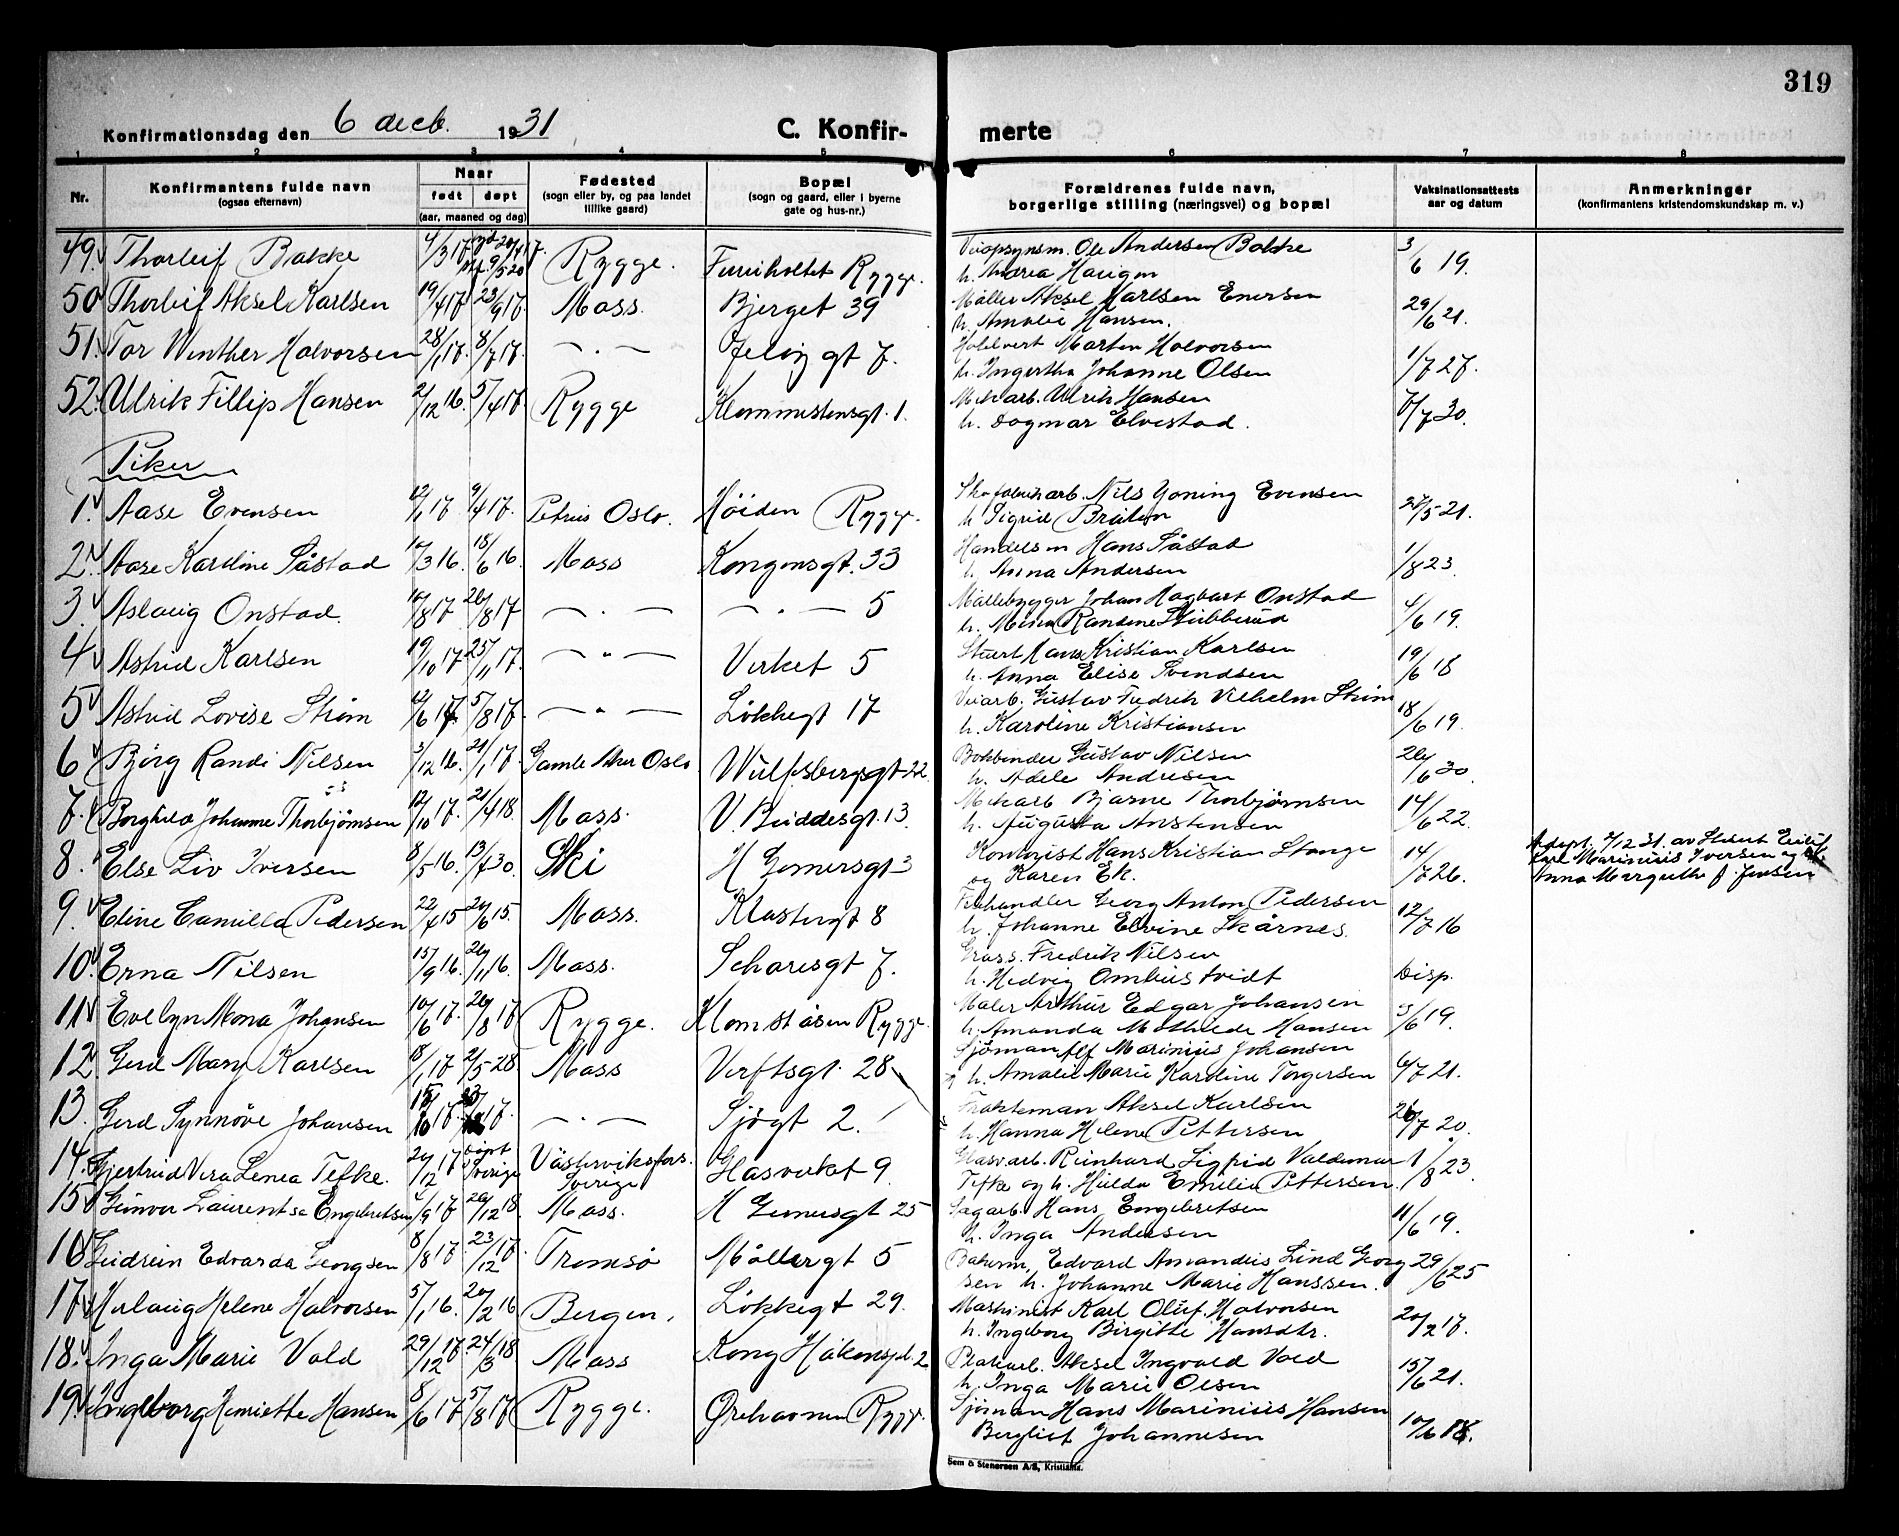 319
Konfirmationsdag den 6 decb. 1931
C. Konfir- merte
1 2 3 4 5 6 7 8
Nr.
Konfirmantens fulde navn
(ogsaa efternavn)
Naar
født døpt
(aar, maaned og dag)
Fødested
(sogn eller by, og paa landet
tillike gaard)
Bopæl
(sogn og gaard, eller i byerne
gate og hus-nr.)
Forældrenes fulde navn,
borgerlige stilling (næringsvei) og bopæl
Vaksinationsattests
aar og datum
Anmerkninger
(konfirmantens kristendomskundskap m. v.)
49. Thorleif Bakke 4/3 17. Rygge. Furuholtet Rygge. Ole Andersen Bakke 3/6 19.
h. Andrea Haugen
50 Thorleif Aksel Karlsen 19/4 17. 23/9 17. Moss. Bjerget 39 Møller Aksel Karlsen Enersen 29/6 21.
h. Amalie Hansen.
51. Tor Winther Halvorsen 28/1 17. 8/7 17. — . — Jeløygt 7. Marten Halvorsen 1/7 27.
h. Ingertha Johanne Olsen
52. Ulrik Fillip Hansen 2/12 16. 5/4 17. Rygge Klommestensgt. 1. Mek arb. Ulrik Hansen 7/7 30.
h. Dagmar Elvestad.
Piker
1. Aase Evensen 12/1 17. 9/4 17. Petrus Oslo. Höiden Rygge. Skofabrikarb. Nils Yoning Evensen 28/5 21.
h. Sigrid Bråten
2. Aase Karoline Såstad 17/3 16. 18/6 16. Moss Kongensgt. 33 Handelsm Hans Såstad 1/8 23.
h. Anna Andersen
3. Aslaug Onstad. 17/8 17 26/8 17 — . — — . — 5 Møllebygger Johan Hagbart Onstad 4/6 19.
h. Mina Randine Stubberud
4 Astrid Karlsen 19/10 17 25/11 17. — " — Verket 5 Stuert Hans Kristian Karlsen 19/6 18
h. Anna Elise Svendsen
5 Astrid Lovise Strøm 12/6 17. 5/8 17. — " — Løkkegt 17 Veiarb. Gustav Fredrik Vilhelm Strøm 18/6 19.
h. Karoline Kristiansen
6 Björg Randi Nilsen 3/12 16. 21/1 17. Gamle Aker Oslo Wulfsbergsgt 22. Bokbinder Gustav Nilsen 26/6 30.
h. Adele Andresen
7. Borghild Johanne Thorbjørnsen 12/10 17. 21/4 18. Moss. V. Buddesgt. 13. Mekarb Bjarne Thorbjørnsen 14/6 22.
h. Augusta Anstensen
8. Else Liv Iversen 8/5 16. 13/7 30. Ski H Gernersgt 3 Kontorist Hans Kristian Stange 14/7 26. Adopt. 2/12 31. av Stuert Eiluf
og Karen Ek. Karl Marinius Iversen og
Anna Margrethe f. Jensen
9. Eline Camilla Pedersen 22/4 15 20/6 15. Moss. Klostergt 8 Georg Anton Pedersen 12/7 16
h. Johanne Elvine Skårnes.
10. Erna Nilsen 15/9 16. 26/11 16. Moss. Schavesgt 7. Gross. Fredrik Nilsen Disp.
h. Hedvig Ombustvedt
11. Evelyn Mona Johansen 10/6 17. 26/8 17 Rygge. Klomstøsen Rygge. Maler Arthur Edgar Johansen 3/6 19.
h. Amanda Mathilde Hansen
12 Gerd Mary Karlsen 18/1 17 2/5-28 Moss Verftsgt. 28 Sjøman Alf Marinius Johansen 6/7 21.
h. Amalie Marie Karoline Torgersen
13. Gerd Synnöve Johansen — . — Sjögt 2. Fraktemann Aksel Karlsen 26/7 20.
h. Hanna Helene Pettersen
14. Gjertrud Vera Linea Tefke. 24/12 17 döpt Sverige Västerviksfors. Sverige Glasverket 9. Glasv arb. Reinhard Sigfrid Valdemar 1/8 23.
Tefke og h. Hulda Emilie Pettersen.
15 Gunvor Laurentse Engebretsen 4/9 17 26/12 18 Moss. H Gernersgt 25 Sagarb. Hans Engebretsen 11/6 19.
h. Inga Andersen
16 Gudrun Edvarda Georgsen 8/8 17. 23/12 17. Tromsø Møllergt 5 Bakerm, Edvard Amandius Lind Georg 29/6 25
sen h. Johanne Marie Hanssen.
17 Herlaug Helene Halvorsen 5/1 16. 20/2 16 Bergen. Løkkegt 29. Maskinist Karl Oluf Halvorsen 20/2 17.
h. Ingeborg Birgitte Hansdtr.
18. Inga Marie Vold 29/12 17. 24/3 18 Moss Kong Håkonspl. 2 Aksel Ingvald Vold 15/6 21.
h. Inga Marie Olsen
19. Ingeborg Henriette Hansen 8/6 17. 5/8 17 Rygge. Ørehavnen Rygge. Sjöman Hans Marinius Hansen 10/6 18.
Bergliot Johannesen
Sem & Stenersen A/S, Kristiania.